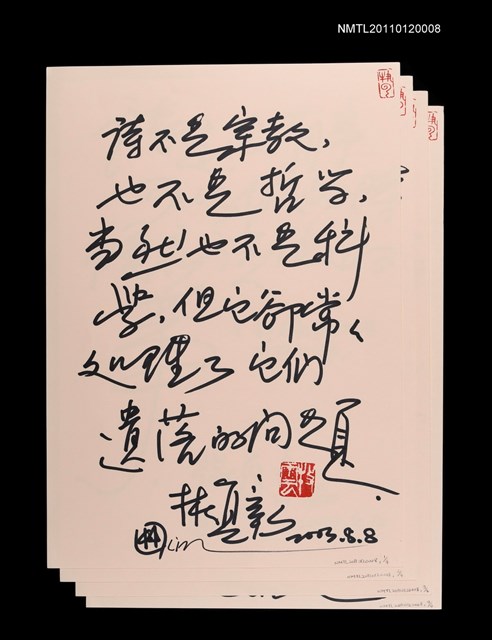 NMTL20110120008
詩不是宗教，
也不是哲学，
當然也不是科
学，但它卻常々
処理了它們
遺落的問題．
林亙泰
Lin
2003.8.8